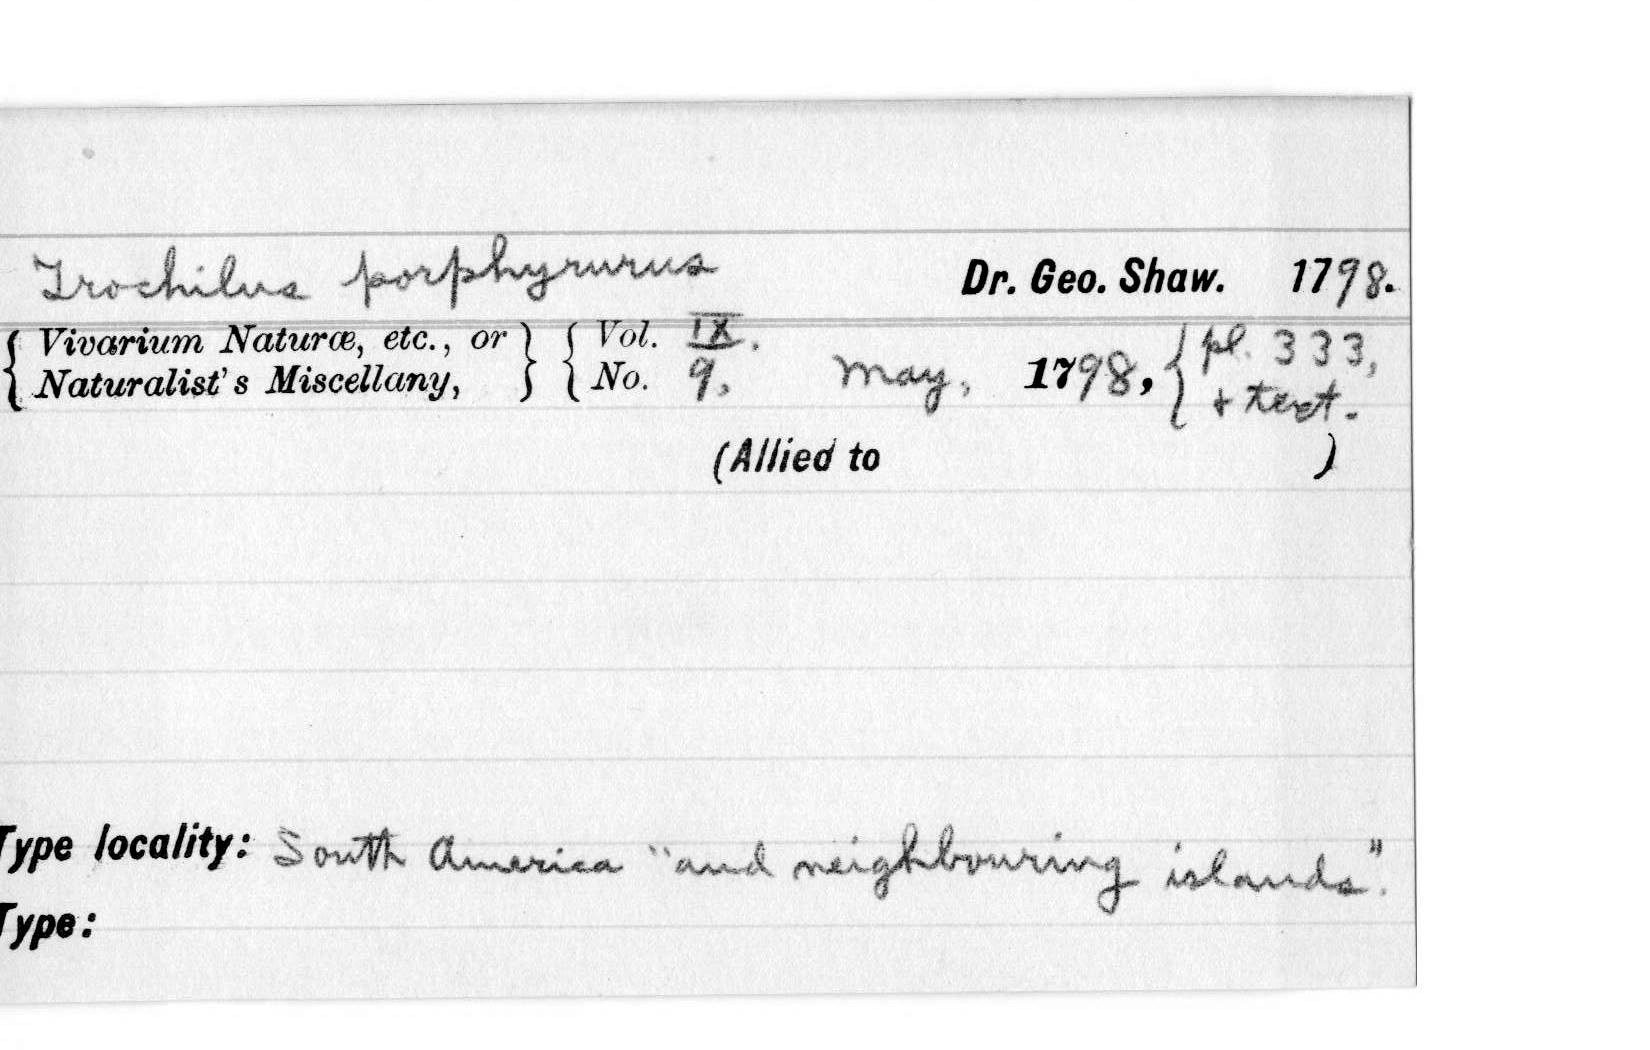 Trochilus porphyrurus Dr. Geo. Shaw. 1798.
{ Vivarium Naturæ, etc., or } { Vol. IX. { pl. 333,
{ Naturalist's Miscellany, } { No. 9, May, 1798, { + text.
(Allied to )
Type locality: South America "and neighbouring islands".
Type: